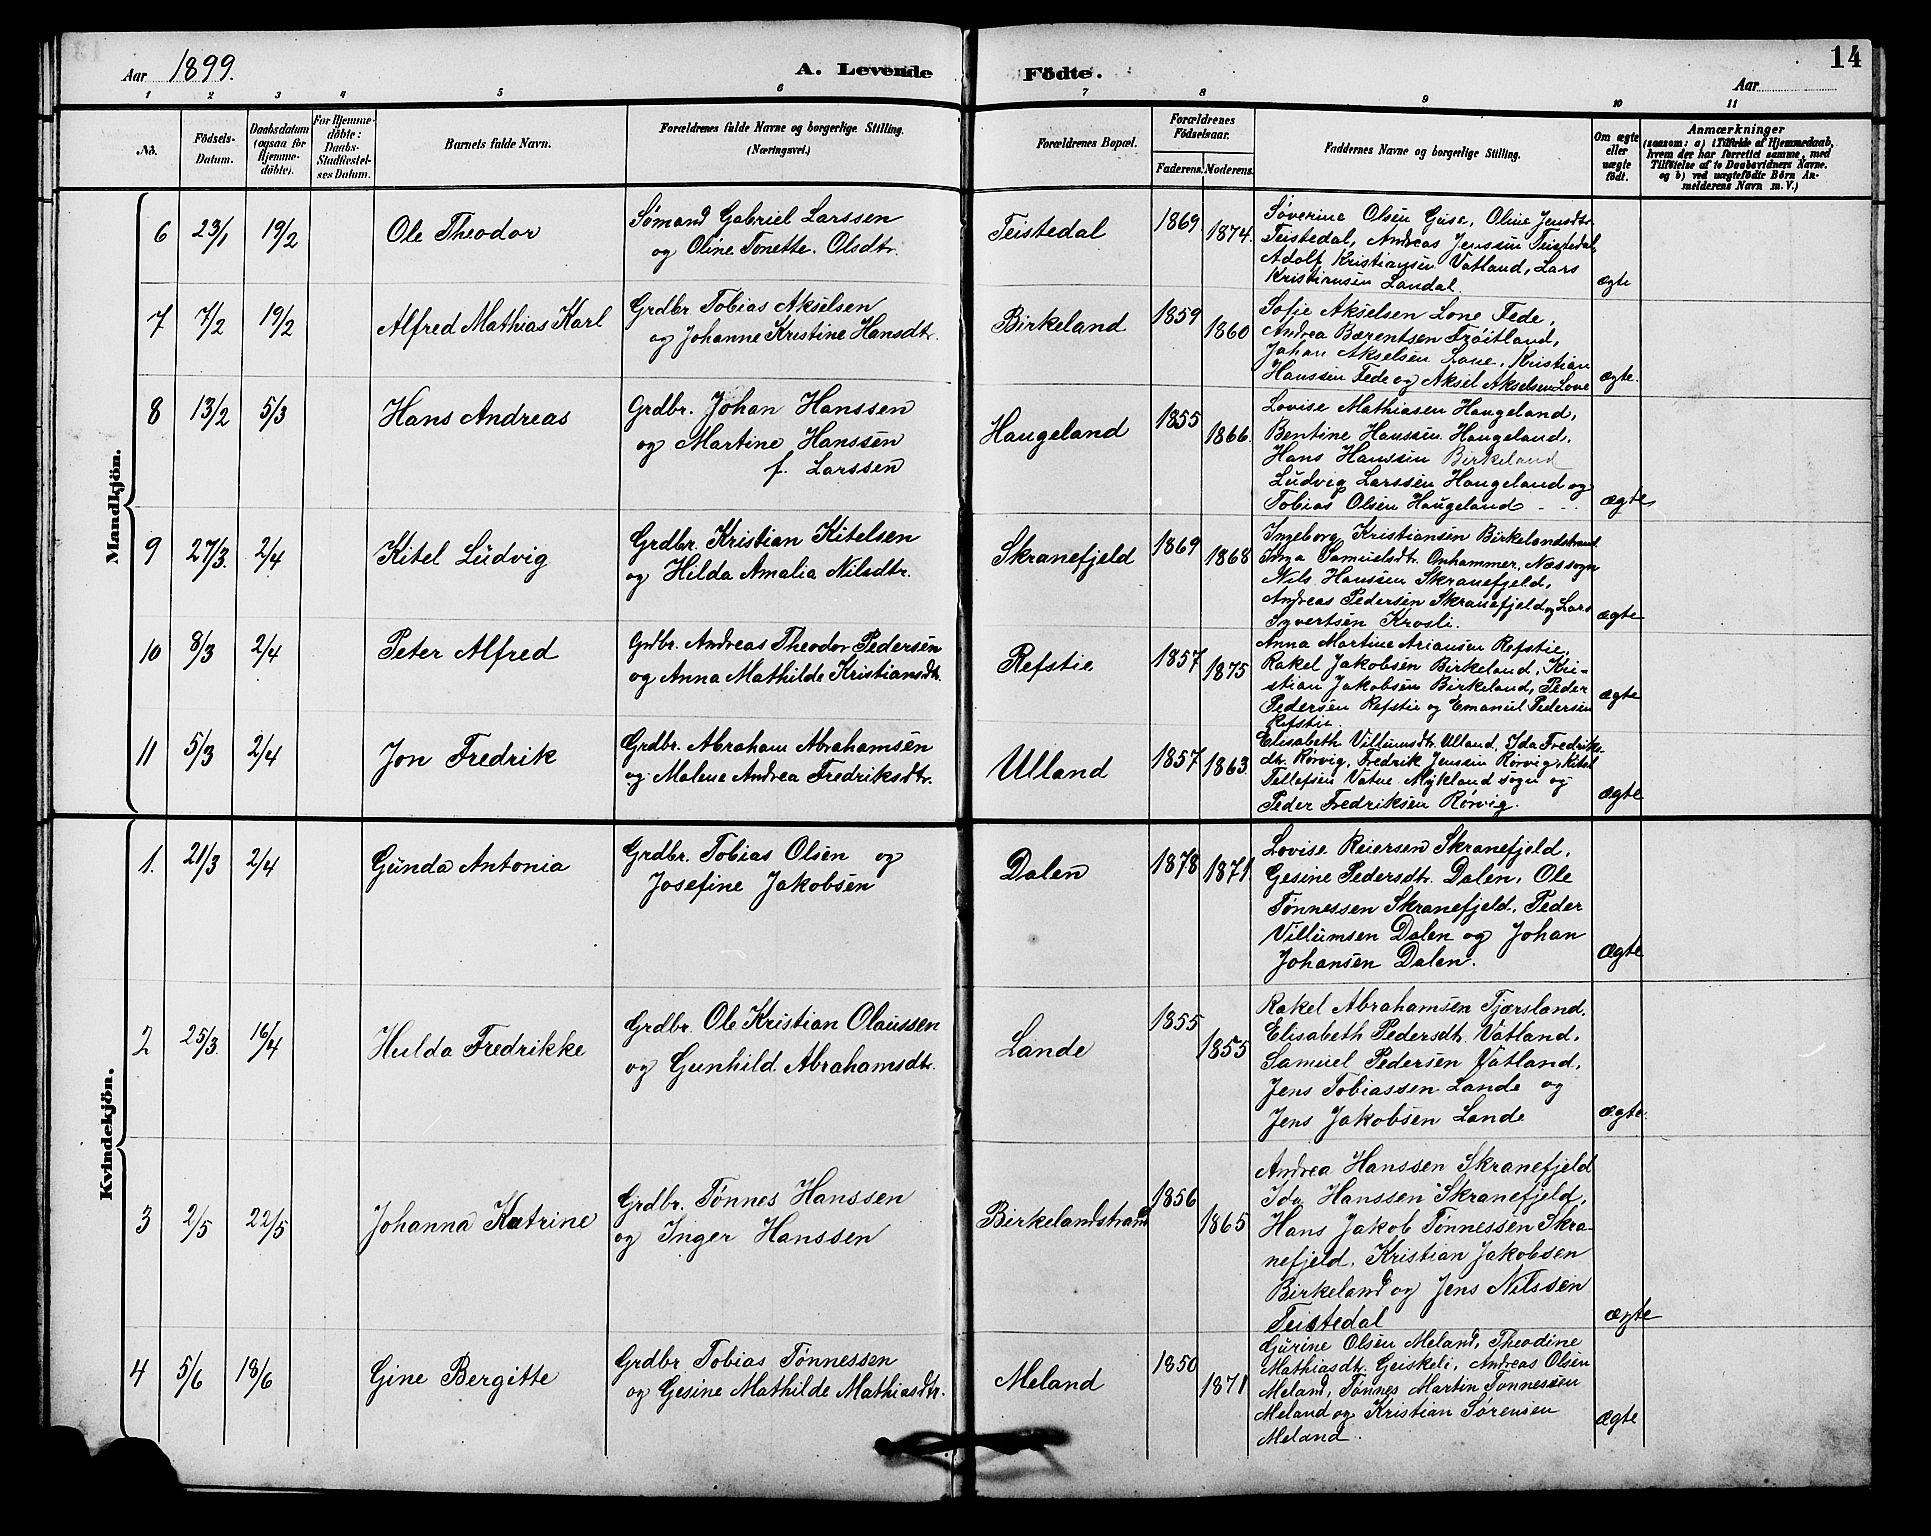 14
Aar 1899. A. Levende Födte. Aar
1 2 3 4 5 6 7 8 9 10 11
No. Födsels-Datum. Daabsdatum (ogsaa for Hjemmedöbte). For Hjemmedöbte: Daabs-Stadfæstelses Datum. Barnets fulde Navn. Forældrenes fulde Navne og borgerlige Stilling. (Næringsvei.) Forældrenes Bopæl. Forældrenes Födselsaar. Faderens. Moderens. Faddernes Navne og borgerlige Stilling. Om ægte eller uægte födt. Anmærkninger (saasom: a) i Tilfælde af Hjemmedaab, hvem der har forrettet samme, med Tilföielse af to Daabsvidners Navne. og b) ved uægtefödte Börn Anmelderens Navn m. V.)
Mandkjön.
6 23/1 19/2 Ole Theodor
Sømand Gabriel Larssen
og Oline Tonette. Olsdtr.
Teistedal 1869 1874.
Søverine Olsen Guse, Oline Jensdtr.
Teistedal, Andreas Jenssen Teistedal,
Adolf Kristiansen Vatland, Lars
Kristiansen Landal. ægte
7 7/2 19/2 Alfred Mathias Karl
Grdbr Tobias Akselsen
og Johanne Kristine Hansdtr.
Birkeland 1859 1860
Sofie Akselsen Lone Fede,
Andrea Bærentsen Frøitland,
Johan Akselsen Lone, Kristian
Hanssen Fede og Aksel Akselsen Lone ægte.
8 13/2 5/3 Hans Andreas
Grdbr. Johan Hanssen
og Martine Hanssen
f. Larssen
Haugeland 1855 1866.
Lovise Mathiasen Haugeland,
Bentine Hanssen Haugeland,
Hans Hanssen Birkeland
Ludvig Larssen Haugeland og
Tobias Olsen Haugeland ægte
9 27/3. 2/4 Kitel Ludvig
Grdbr. Kristian Kitelsen
og Hilda Amalia Nilsdtr.
Skranefjeld 1869 1868
Ingeborg Kristiansen Birkelandstrand
Inga Samuelsdtr. Omhammer, Næssogn
Nils Hanssen Skranefjeld,
Andreas Pedersen Skranefjeld og Lars
Syvertsen Krosli. ægte
10 8/3 2/4 Peter Alfred
Grdbr. Andreas Theodor Pedersen
og Anna Mathilde Kristiansdtr.
Refstie 1857 1875
Anna Martine Ariansen Refstie,
Rakel Jakobsen Birkeland, Kri-
stian Jakobsen Birkeland, Peder
Pedersen Refstie og Emanuel Pedersen
Refstie. ægte
11 5/3 2/4 Jon Fredrik
Grdbr. Abraham Abrahamsen
og Malene Andrea Fredriksdtr.
Ulland 1857 1863.
Elisabeth Villumsdtr. Ulland, Ida Fredriks-
dtr. Rørvig, Fredrik Jenssen Rørvig, Kitel
Tellefsen Vatne Mykland sogn og
Peder Fredriksen Rørvig. ægte
Kvindekjön.
1. 21/3 2/4 Gunda Antonia
Grdbr. Tobias Olsen og
Josefine Jakobsen
Dalen 1878 1871.
Lovise Reiersen Skranefjeld,
Gesine Pedersdtr. Dalen, Ole
Tønnessen Skranefjeld, Peder
Villumsen Dalen og Johan
Johansen Dalen. ægte
2 25/3. 16/4 Hulda Fredrikke
Grdbr. Ole Kristian Olaussen
og Gunhild Abrahamsdtr.
Lande 1855 1855
Rakel Abrahamsen Tjærsland,
Elisabeth Pedersdtr. Vatland,
Samuel Pedersen Vatland,
Jens Tobiassen Lande og
Jens Jakobsen Lande ægte.
3 2/5 22/5 Johanna Katrine
Grdbr. Tønnes Hanssen
og Inger Hanssen
Birkelandstrand 1856 1865
Andrea Hanssen Skranefjeld
Ida Hanssen Skranefjeld,
Hans Jakob Tønnessen Skra-
nefjeld, Kristian Jakobsen
Birkeland og Jens Nilssen
Teistedal ægte
4 5/6 18/6 Gine Bergitte
Grdbr Tobias Tønnessen
og Gesine Mathilde Mathiasdtr.
Meland 1850 1871
Gurine Olsen Meland, Theodine
Mathiasdtr. Geiskeli, Andreas Olsen
Meland, Tønnes Martin Tønnessen
Meland og Kristian Sørensen
Meland. ægte